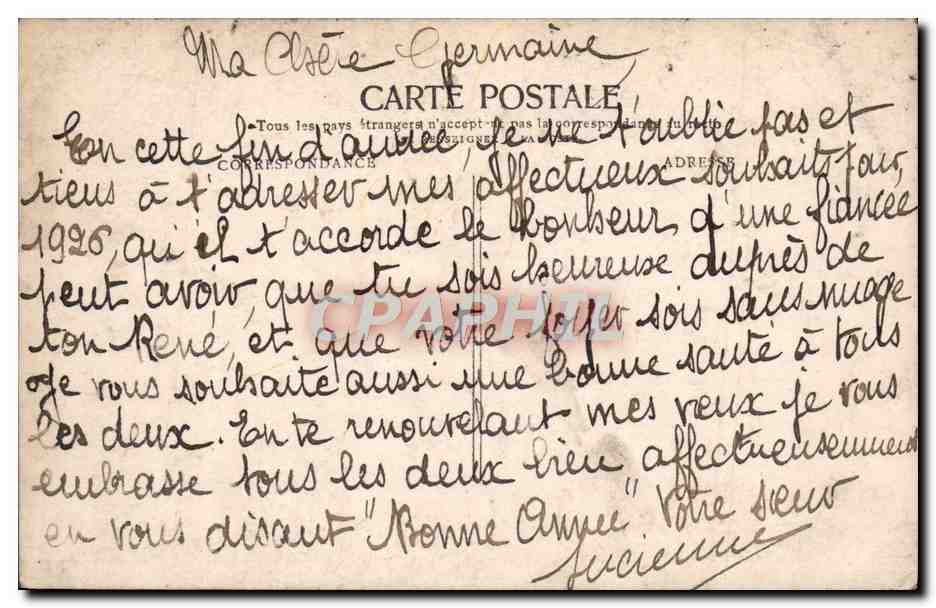 Ma Chère Germaine
CARTE POSTALE
Tous les pays étrangers n'acceptent pas la correspondance au recto
CORRESPONDANCE ADRESSE
En cette fin d'année, je ne t'oublie pas et
tiens à t'adresser mes affectueux souhaits pour
1926, qu'il t'accorde le bonheur d'une fiancée
peut avoir, que tu sois heureuse auprès de
ton René, et que votre foyer sois sans nuage
Je vous souhaite aussi une bonne santé à tous
les deux. En te renouvelant mes vœux je vous
embrasse tous les deux bien affectueusement
en vous disant "Bonne Année" Votre sœur
Lucienne
CPAPHIL